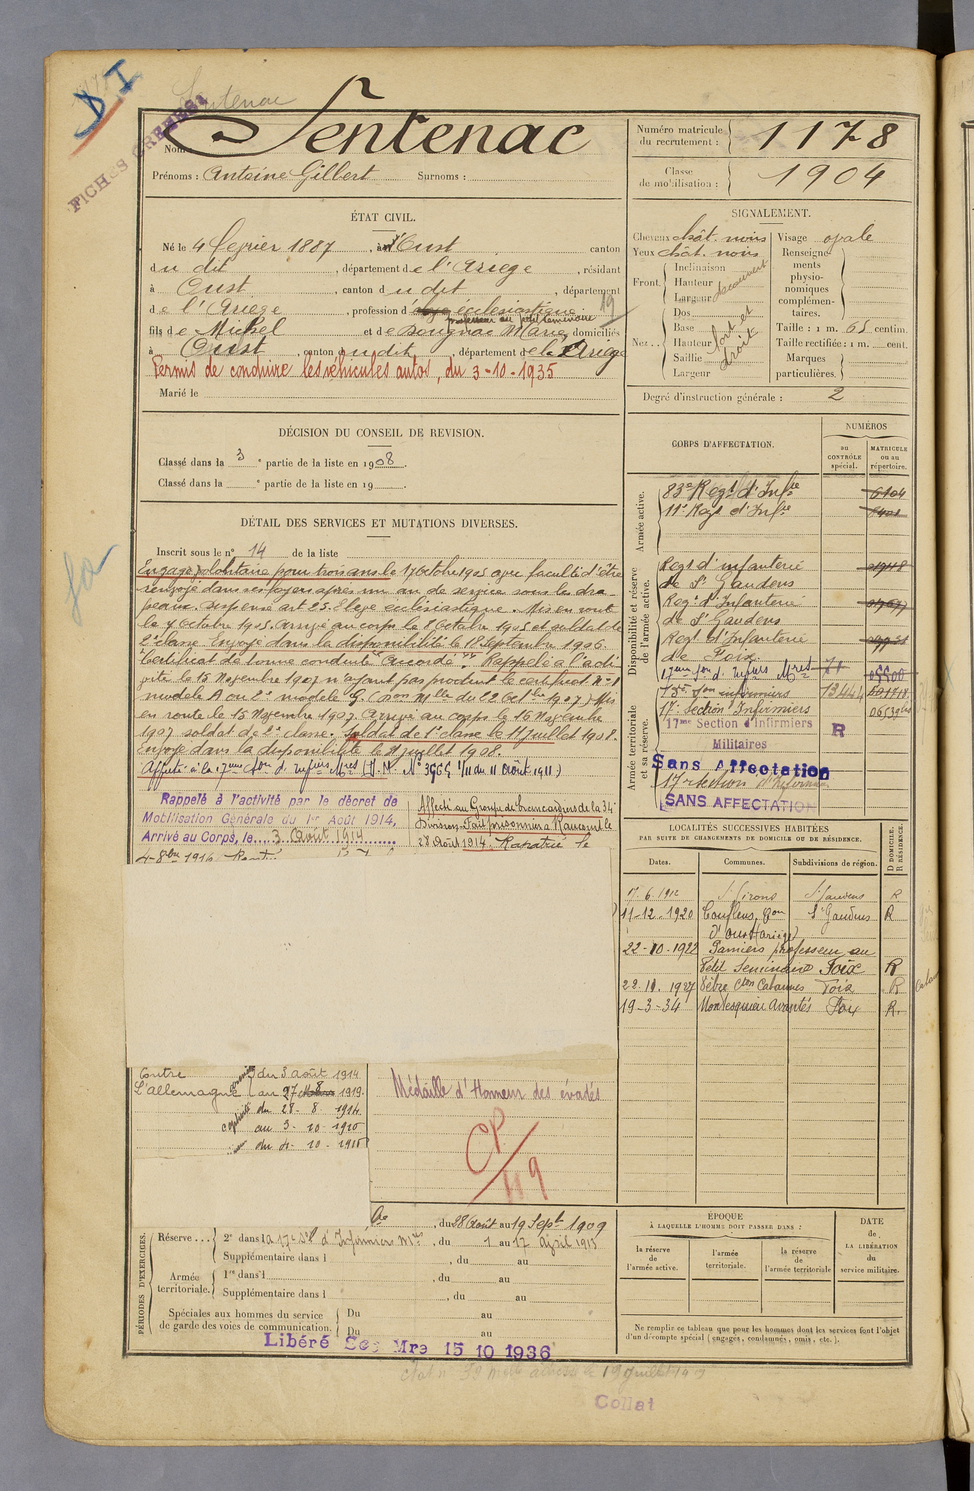 Sentenac
FICHES
Nom: Sentenac
Prénoms : Antoine Gilbert Surnoms :
Numéro matricule du recrutement : 1178
Classe de mobilisation : 1904
ÉTAT CIVIL.
Né le 4 février 1887, à Oust canton
du dit, département de l'Ariège, résidant
à Oust, canton du dit, département
de l'Ariège, profession d'élève écclésiastique
professeur au petit séminaire
fils de Michel et de Souquac Marie domiciliés
à Oust, canton du dit, département de l'Ariège
Permis de conduire les véhicules autos, du 3-10-1935
Marié le
SIGNALEMENT.
Cheveux chât. noirs
Yeux chât. noirs
Front. Inclinaison
Hauteur découvert
Largeur
Nez Dos
Base fort et
Hauteur droit
Saillie
Largeur
Visage ovale
Renseignements physionomiques complémentaires.
Taille : 1 m. 65 centim.
Taille rectifiée : 1 m. cent.
Marques particulières.
Degré d'instruction générale : 2
DÉCISION DU CONSEIL DE REVISION.
Classé dans la 3e partie de la liste en 1908.
Classé dans la e partie de la liste en 19
DÉTAIL DES SERVICES ET MUTATIONS DIVERSES.
Inscrit sous le n° 14 de la liste
Engagé volontaire pour trois ans le 7 Octobre 1905 avec faculté d'être
renvoyé dans ses foyers après un an de service sous les dra-
peaux. dispensé art 23. Elève ecclésiastique. Mis en route
le 7 Octobre 1905. Arrivé au corps le 8 Octobre 1905 et soldat de
2e classe. Envoyé dans la disponibilité le 18 Septembre 1906.
Certificat de bonne conduite "Accordé". Rappelé à l'acti-
vité le 15 Novembre 1907 n'ayant pas produit le certificat n°1
modèle A ou 2e modèle G (Don Mlle du 22 Octbre 1907) Mis
en route le 15 Novembre 1907. Arrivé au corps le 16 Novembre
1907 soldat de 2e classe. Soldat de 1e classe le 11 juillet 1908.
Envoyé dans la disponibilité le 11 juillet 1908.
Affecté à la 17eme Son d. Infiers Mres (D. M. N° 3966 1/11 du 11 Août 1911.)
Rappelé à l'activité par le décret de
Mobilisation Générale du 1er Août 1914,
Arrivé au Corps, le 3 Août 1914
Affecté au Groupe de brancardiers de la 34e
Division. Fait prisonnier à Raucourt le
28 Août 1914. Rapatrié le
4-8bre 1915
Contre
L'allemagne
du 3 août 1914
au 27 1919.
captivité
du 28- 8- 1914.
au 3- 10- 1915
du 4- 10- 1915
Médaille d'Honneur des évadés
CP/119
CORPS D'AFFECTATION.
NUMÉROS
au CONTRÔLE spécial.
MATRICULE ou au répertoire.
Armée active.
83e Regt d'Infre 6104
11e Regt d'Infre
Disponibilité et réserve de l'armée active.
Regt d'infanterie
de St Gaudens
Regt d'Infanterie
de St Gaudens
Regt d'Infanterie
de Foix
17eme Son d. Infiers Mres 05500
Armée territoriale et sa réserve.
13e Son infirmiers 13444
17e Section Infirmiers
17me Section d'Infirmiers
Militaires
R
Sans Affectation
17e section d'Infirmiers
SANS AFFECTATION
LOCALITÉS SUCCESSIVES HABITÉES
PAR SUITE DE CHANGEMENTS DE DOMICILE OU DE RÉSIDENCE.
Dates. Communes. Subdivisions de région. D DOMICILE. R RÉSIDENCE.
17.6.1912 St Girons St Gaudens R
11-12-1920 Couflens, Con St Gaudens R
d'Oust (Ariège)
22-10-1922 Pamiers professeur au
Petit Séminaire Foix R
22.11.1927 Cton Cabannes Foix R
19-3-34 Montesquieu Avantès Foix R.
PÉRIODES D'EXERCICES.
, du 28 Août au 19 Septe 1909
Réserve... 2e dans la 17e Son d'Infirmiers Mres, du 1 au 17 avril 1913
Supplémentaire dans l , du au
Armée territoriale. 1re dans l , du au
Supplémentaire dans l , du au
Spéciales aux hommes du service de garde des voies de communication. Du au
Du au
Libéré Sce Mre 15 10 1936
ÉPOQUE
À LAQUELLE L'HOMME DOIT PASSER DANS :
la réserve de l'armée active.
l'armée territoriale.
la réserve de l'armée territoriale
DATE de LA LIBÉRATION du service militaire.
Ne remplir ce tableau que pour les hommes dont les services font l'objet
d'un décompte spécial (engagés, condamnés, omis, etc.).
Collat